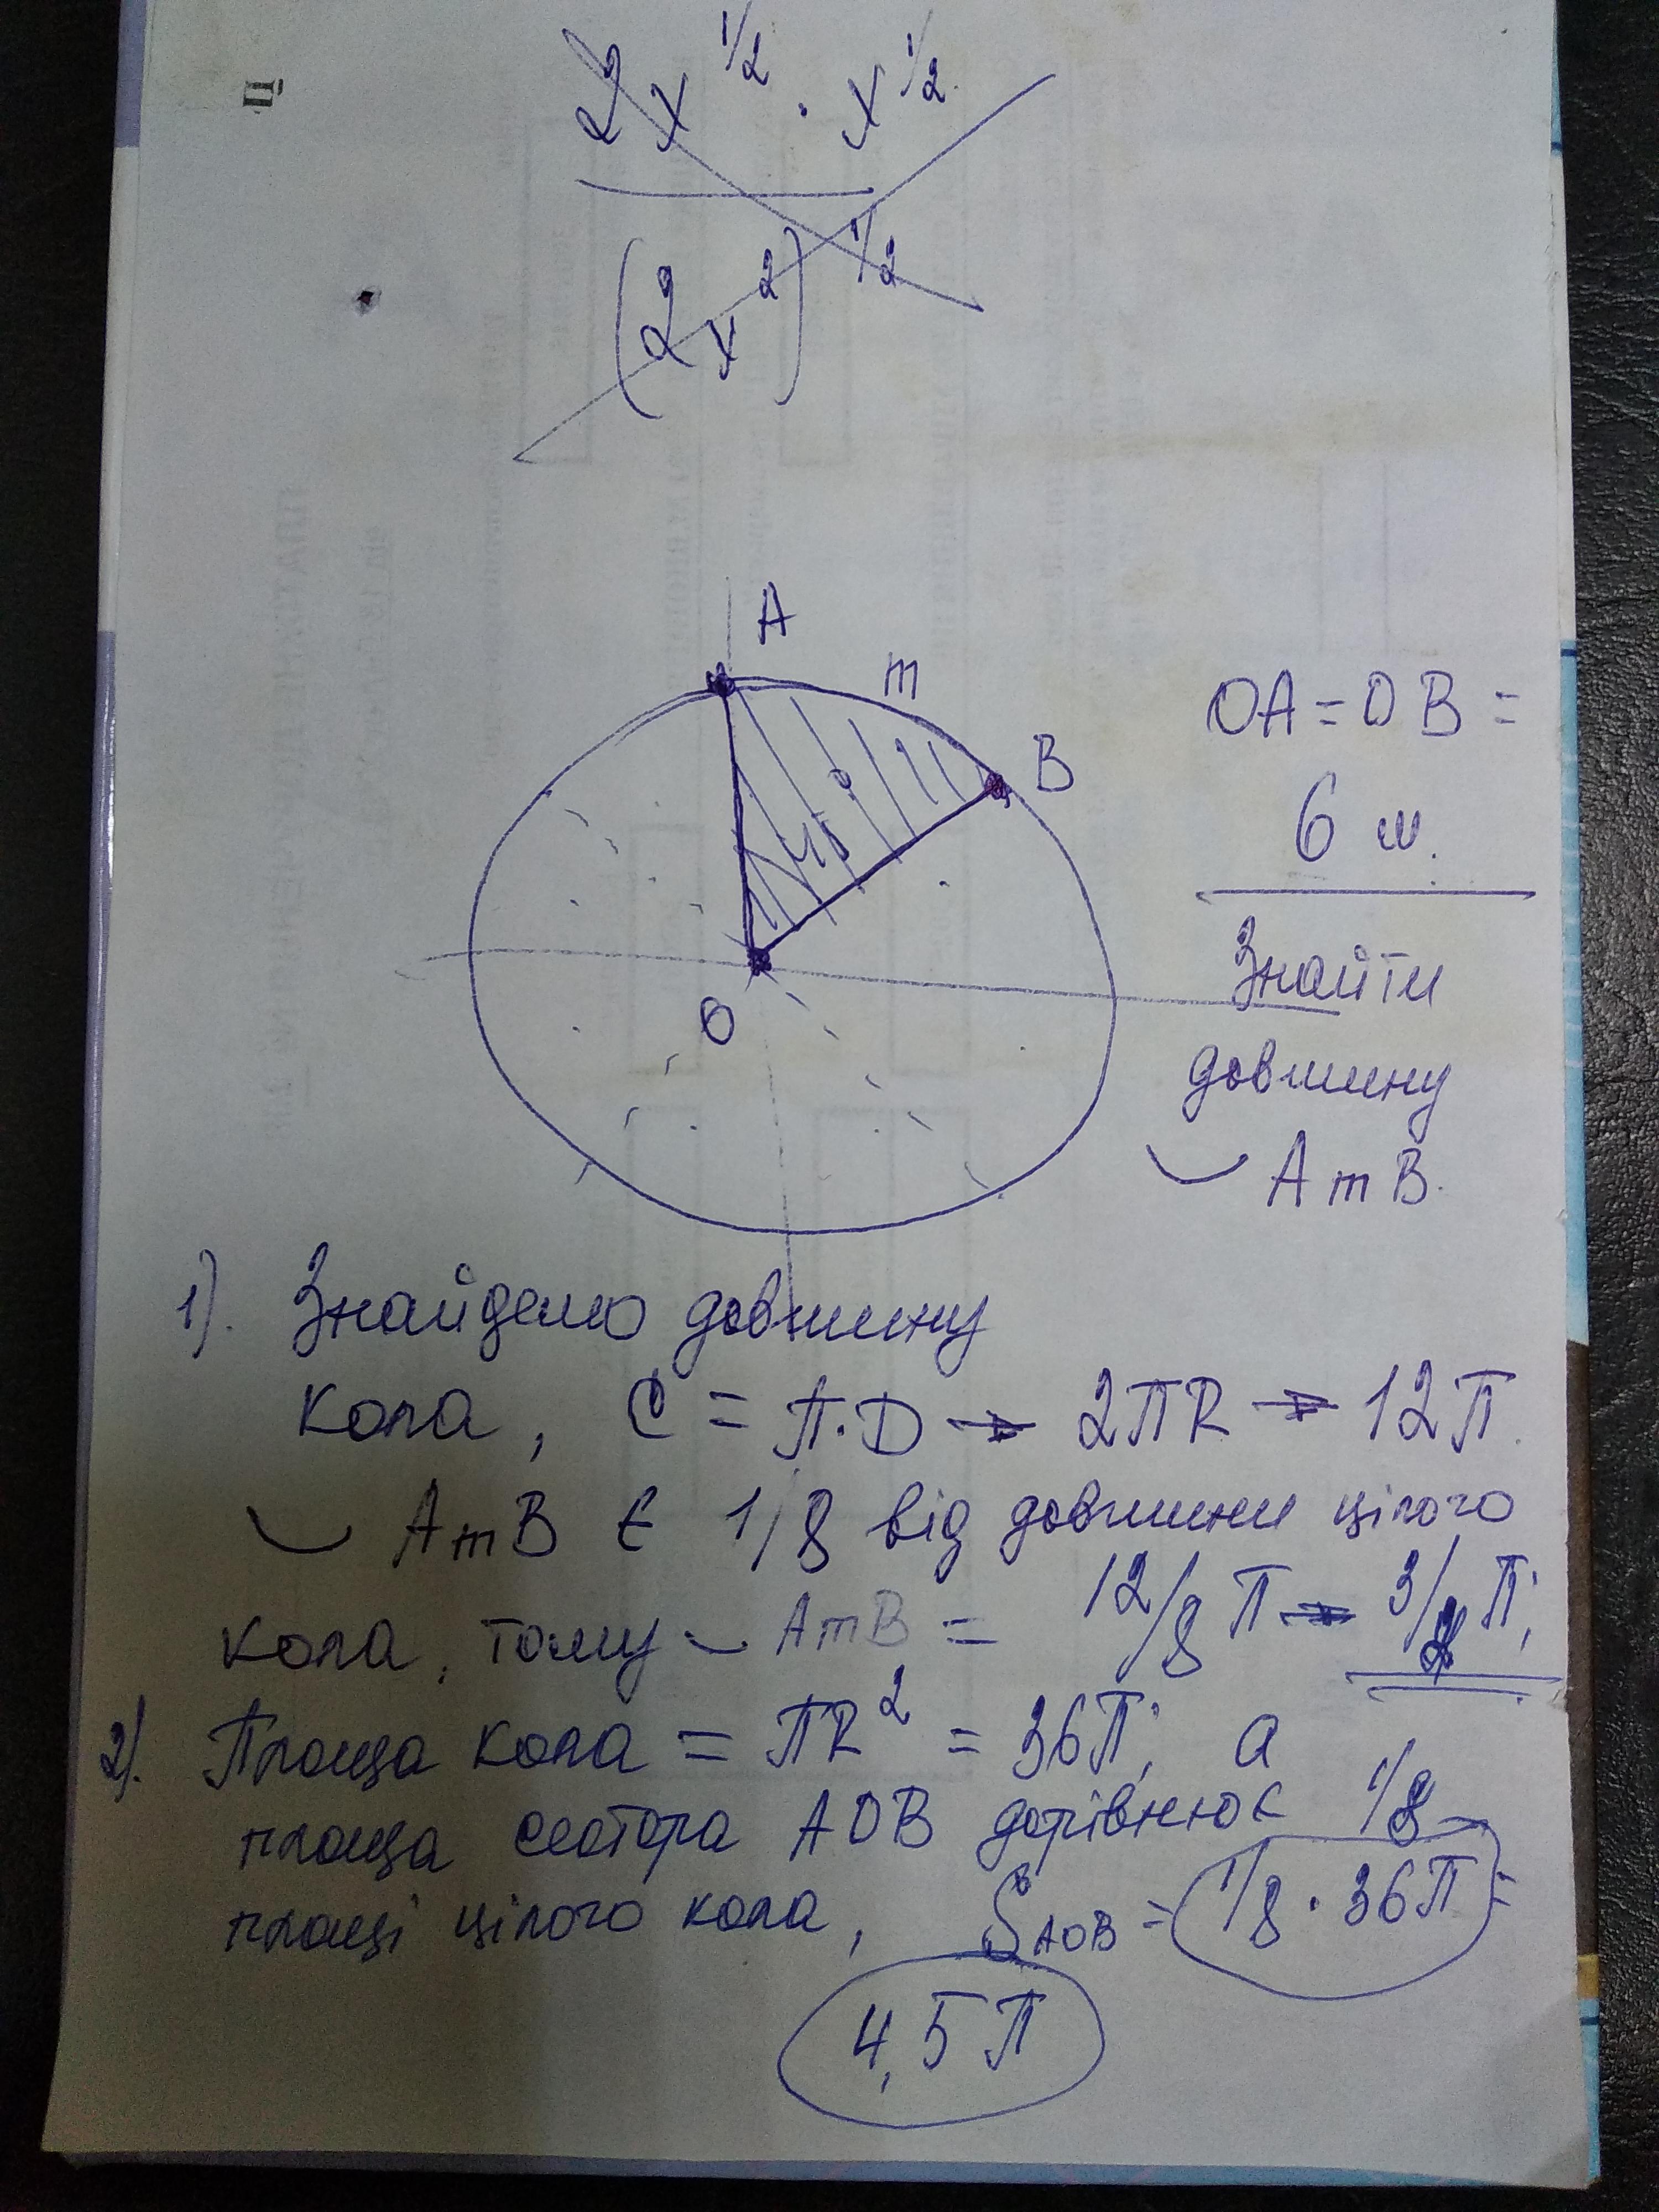 2x^1/2 · x^1/2
(2x^2)^1/2
A
m
B
45°
O
OA = OB =
6 м.
Знайти
довжину
◡ AmB.
1). Знайдемо довжину
кола, C = П·D → 2ПR → 12П.
◡ AmB є 1/8 від довжини цілого
кола, тому ◡ AmB = 12/8 П → 3/2 П;
2). Площа кола = ПR² = 36П; а
площа сектора AOB дорівнює 1/8
площі цілого кола, S AOB = 1/8 · 36П =
4,5П